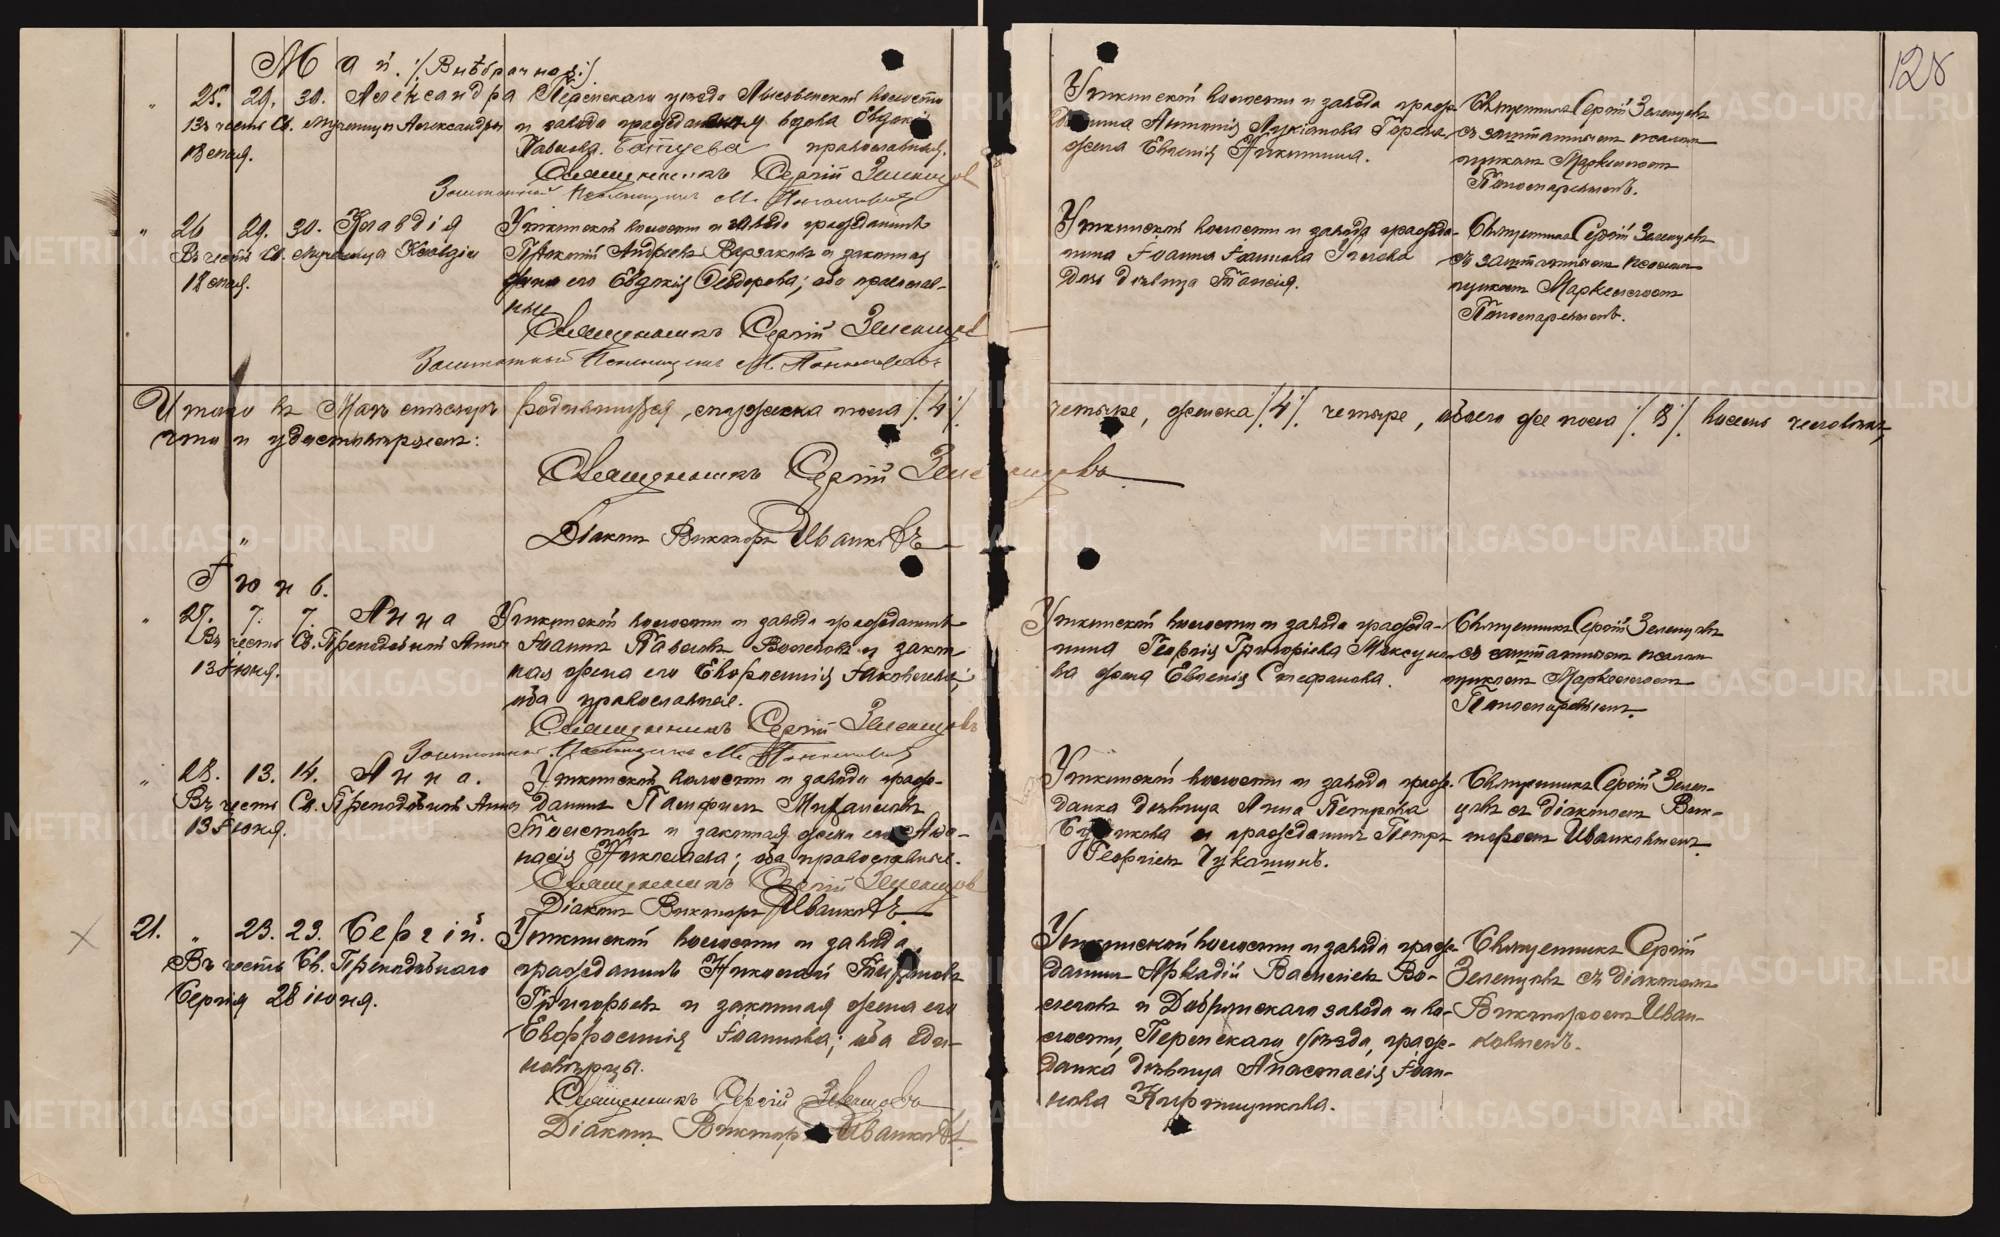 128
Май. /:Внѣбрачноя:/
" 25. 29. 30. Александра
Въ честь Св. мученицы Александры
18 мая.
Пермскаго уѣзда Лысьвенской волости
и завода гражданская вдова Евдокія
Павлова православная.
Священникъ Сергій Зеленцов
Заштатный Псаломщикъ М.
Уткинской волости и завода граж-
данина Антонія Лукіанова
жена Евгенія Никитина.
Священникъ Сергій Зеленцовъ
съ заштатнымъ псалом-
щикомъ Маркелломъ
" 26 29. 30. Клавдія
Въ честь Св. мученицы Клавдіи
18 мая.
Уткинской волости и завода гражданинъ
Прокопій Андреевъ и законная
жена его Евдокія Ѳеодорова; оба православ-
ные
Священникъ Сергій Зеленцов
Заштатный Псаломщикъ М.
Уткинской волости и завода гражда-
нина Іоанна Іоаннова
дочь дѣвица Таисія.
Священникъ Сергій Зеленцовъ
съ заштатнымъ псалом-
щикомъ Маркелломъ
Итого въ Маѣ мѣсяцѣ родившихся, мужеска пола /:4:/ четыре, женска /:4:/ четыре, обоего же пола /:8:/ восемь человѣкъ,
что и удостовѣряемъ:
Священникъ Сергій Зеленцовъ
Діаконъ Викторъ Иванковъ
"
Іюнь.
" 27. 7. 7. Анна
Въ честь Св. Преподобной Анны
13 Іюня.
Уткинской волости и завода гражданинъ
Іоаннъ Павловъ и закон-
ная жена его Евфросинія Іаковлева;
оба православныя.
Священникъ Сергій Зеленцовъ
Заштатный Псаломщикъ М.
Уткинской волости и завода гражда-
нина Георгія Григоріева
жена Евгенія Стефанова.
Священникъ Сергій Зеленцовъ
съ заштатнымъ псалом-
щикомъ Маркелломъ
" 28. 13. 14. Анна.
Въ честь Св. Преподобной Анны
13 Іюня.
Уткинской волости и завода граж-
данинъ Памфилъ
и законная жена его Аѳа-
насія Николаева; оба православные.
Священникъ Сергій Зеленцов
Діаконъ Викторъ Иванковъ
Уткинской волости и завода граж-
данка дѣвица Анна Петрова
и гражданинъ Петръ
Георгіевъ
Священникъ Сергій Зелен-
цовъ съ діакономъ Вик-
торомъ Иванковымъ.
21. " 23. 23. Сергій.
Въ честь Св. Преподобнаго
Сергія 28 іюня.
Уткинской волости и завода
гражданинъ Николай
Григорьевъ и законная жена его
Евфросинія Іоаннова; оба еди-
новѣрцы.
Священникъ Сергій Зеленцовъ
Діаконъ Викторъ Иванковъ
Уткинской волости и завода граж-
данин Аркадій Васильевъ
и Добрянскаго завода и во-
лости, Пермскаго уѣзда, граж-
данка дѣвица Анастасія Іоан-
нова Кирпищикова.
Священникъ Сергій
Зеленцовъ съ діакономъ
Викторомъ Иван-
ковымъ.
METRIKI.GASO-URAL.RU